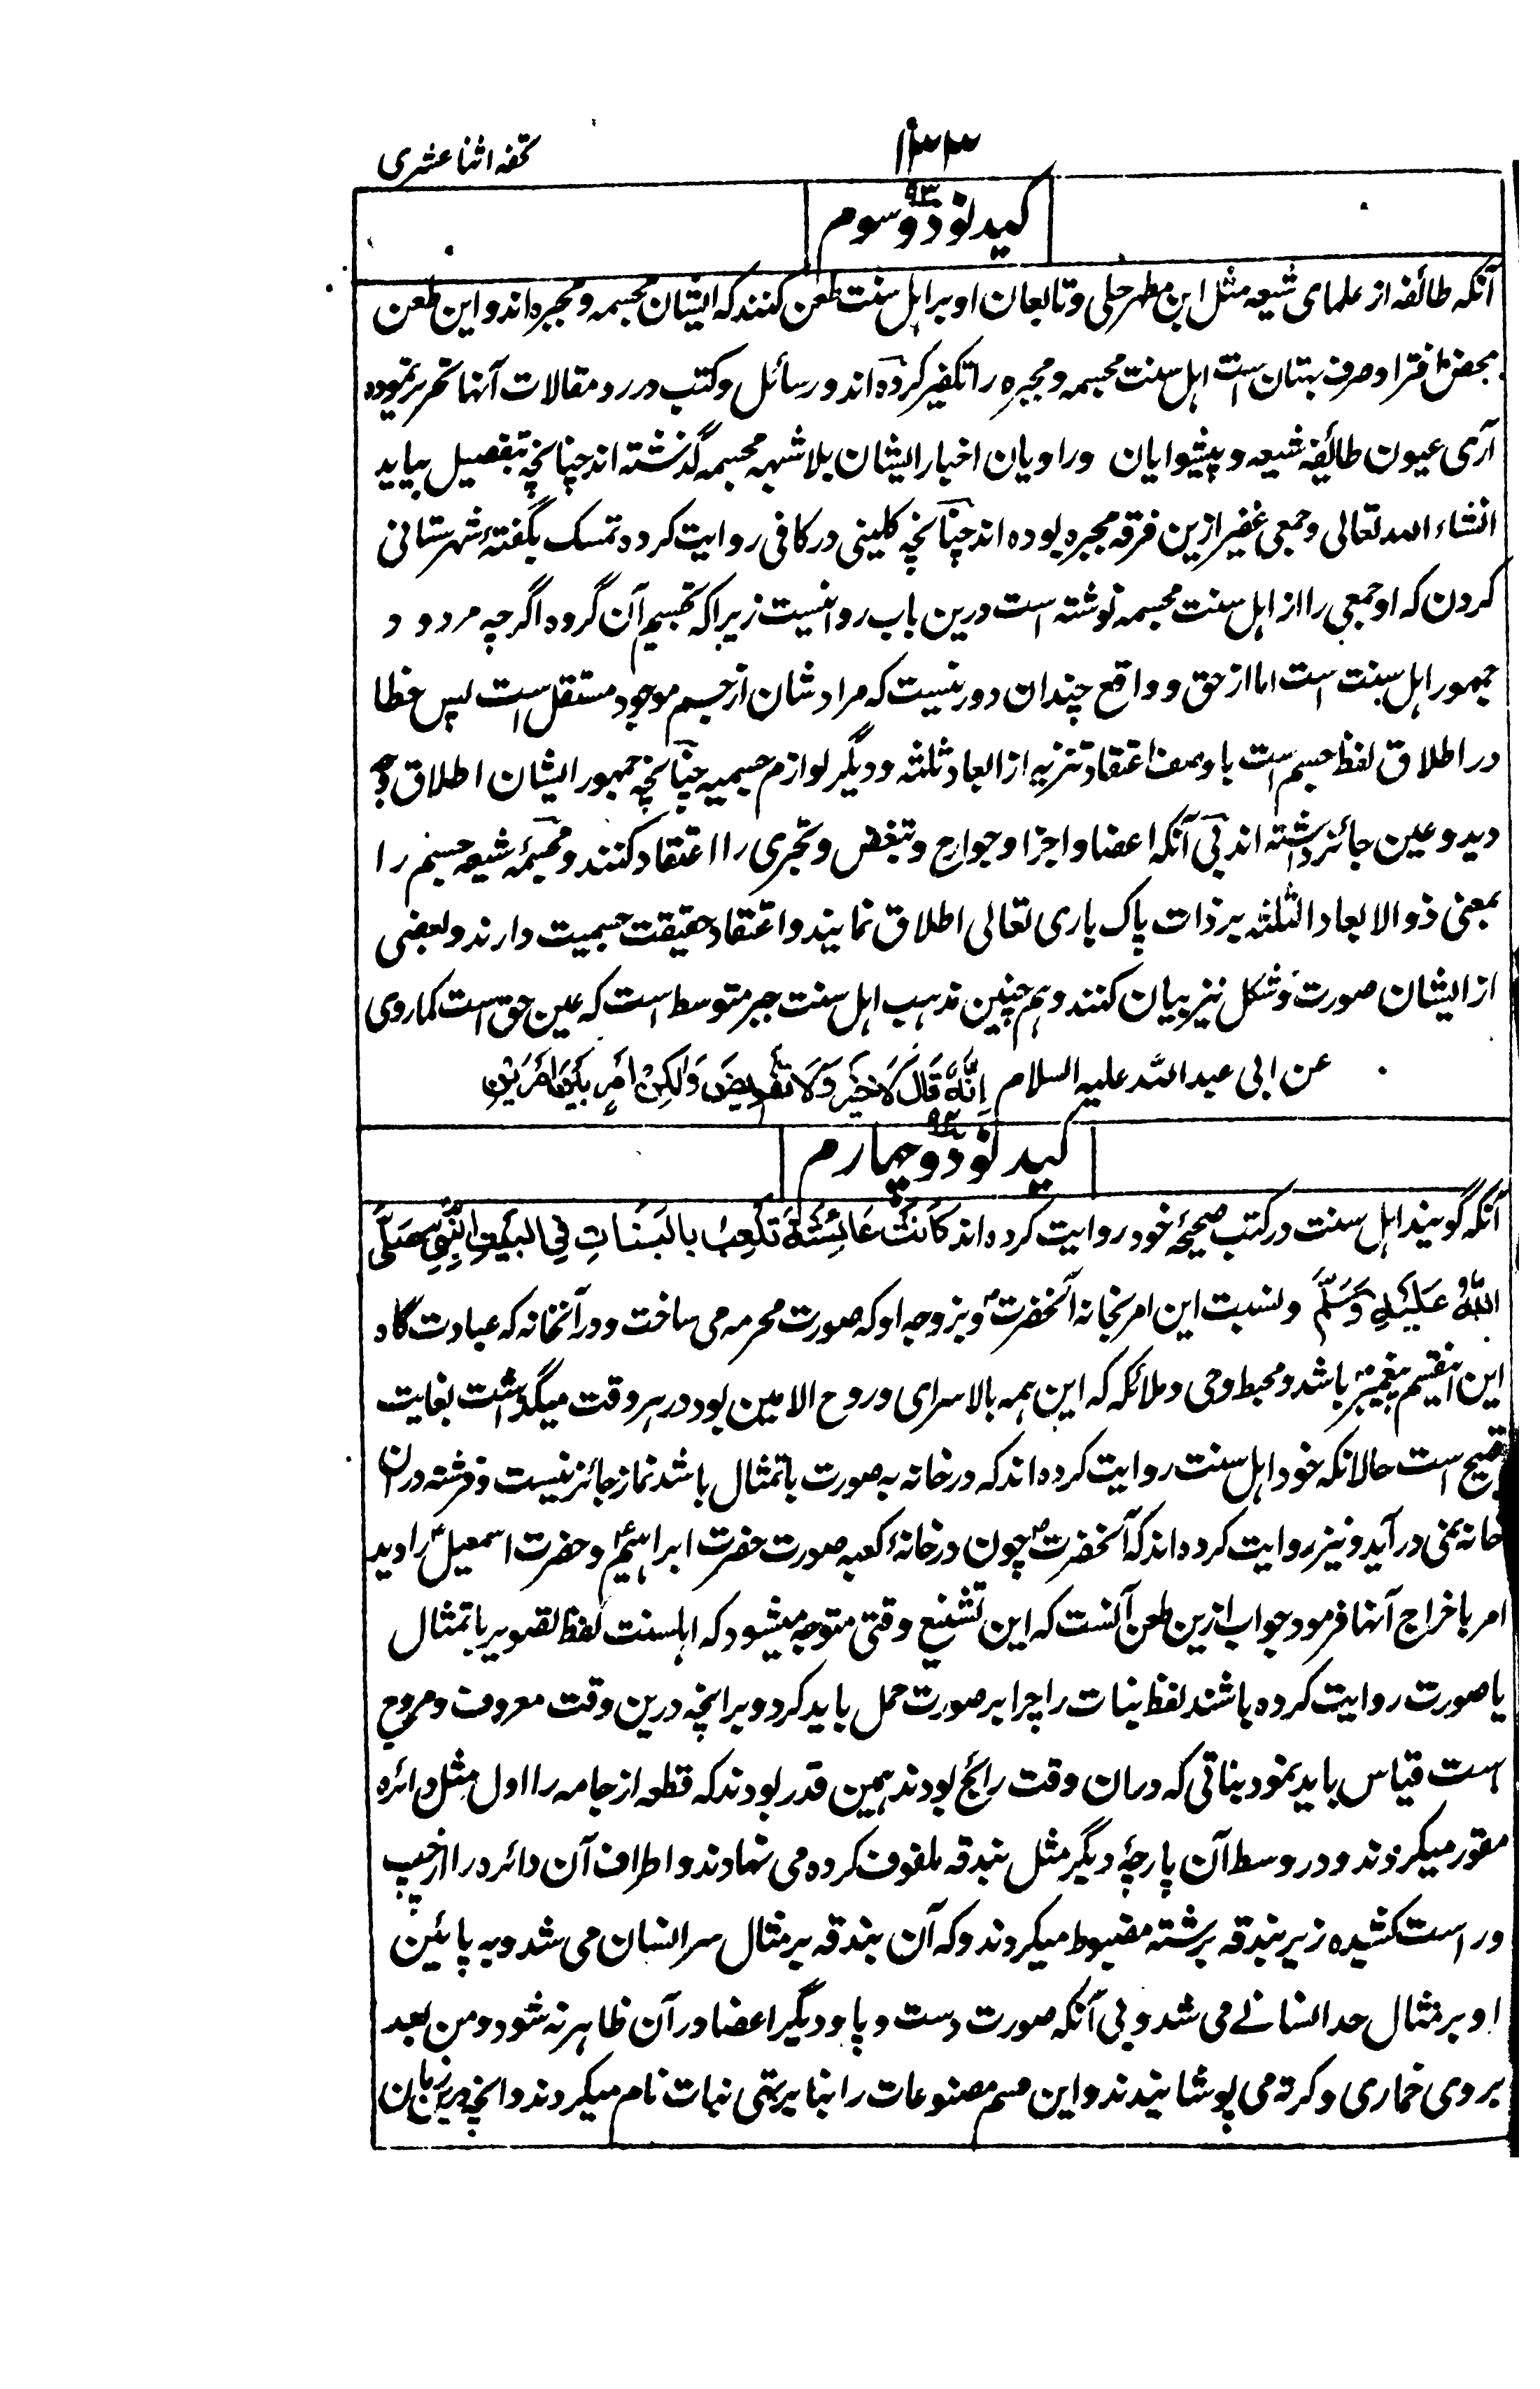 ۱۳۳
تحفه اثنا عشری
کید نود و سوم ۹۳
آنکه طائفه از علمای شیعه مثل ابن مطهر حلی و تابعان او بر اہل سنت طعن کنند که ایشان مجسمه و مجبره اند و این طعن
محض افترا و صرف بہتان است اہل سنت مجسمه و مجبره را تکفیر کرده اند و رسائل و کتب در رد مقالات آنہا تحریر نموده
آری عیون طائفه شیعه و پیشوایان و راویان اخبار ایشان بلا شبہه مجسمه گذشته اند چنانچه بتفصیل بیاید
انشاء الله تعالی و جمعی غفیر ازین فرقه مجبره بوده اند چنانچه کلینی در کافی روایت کرده تمسک بگفتۂ شہرستانی
کردن که او جمعی را از اہل سنت مجسمه نوشته است درین باب روا نیست زیرا که تجسیم آن گروه اگرچه مردود
جمہور اہل سنت است اما از حق و واقع چندان دور نیست که مراد شان از جسم موجود مستقل است پس خطا
در اطلاق لفظ جسم است با وصف اعتقاد تنزیه از ابعاد ثلثه و دیگر لوازم جسمیه چنانچه جمہور ایشان اطلاق وجه
و ید و عین جائز داشته اند بی آنکه اعضا و اجزا و جوارح و تبعض و تجزی را اعتقاد کنند و مجسمۂ شیعه جسم را
بمعنی ذو الابعاد الثلثه بر ذات پاک باری تعالی اطلاق نمایند و اعتقاد حقیقت جسمیت دارند و بعضی
از ایشان صورت و شکل نیز بیان کنند و ہم چنین مذہب اہل سنت جبر متوسط است که عین حق است کما روی
عن ابی عبد الله علیه السلام اِنَّهُ قَالَ لَا جَبْرَ وَلَا تَفْوِیضَ وَلٰکِنْ اَمْرٌ بَیْنَ اَمْرَیْنِ
کید نود و چہارم ۹۴
آنکه گویند اہل سنت در کتب صحیحۂ خود روایت کرده اند کَانَتْ عَائِشَةُ تَلْعَبُ بِالبَنَاتِ فِی البَیْتِ النَّبِیِّ صَلَّی
اللّٰهُ عَلَیْهِ وَسَلَّمَ و نسبت این امر بخانه آنحضرت ص و بزوجه او که صورت محرمه می ساخت و در آنخانه که عبادت گاه
این ‌‌پیغمبر باشد و مہبط وحی و ملائکه که این ہمه بالاسرای و روح الامین بود در ہر وقت میگذشت بغایت
قبیح است حالانکه خود اہل سنت روایت کرده اند که در خانه به صورت یا تمثال باشد نماز جائز نیست و فرشته دران
خانه نمی درآید و نیز روایت کرده اند که آنحضرت ص چون در خانۂ کعبه صورت حضرت ابراہیم ع و حضرت اسمعیل ع را دید
امر باخراج آنہا فرمود جواب ازین طعن آنست که این تشنیع وقتی متوجه میشود که اہلسنت لفظ تصویر یا تمثال
یا صورت روایت کرده باشند لفظ بنات را چرا بر صورت حمل باید کرد و بر آنچه درین وقت معروف و مروج
است قیاس باید نمود بناتی که دران وقت رائج بودند ہمین قدر بودند که قطعه از جامه را اول مثل دائره
مقور میکردند و در وسط آن پارچۂ دیگر مثل بندقه ملفوف کرده می نہادند و اطراف آن دائره را از چپ
و راست کشیده زیر بندقه برشته مضبوط میکردند و که آن بندقه بر مثال سر انسان می شد و به پائین
او بر مثال حد انسانے می شد و بی آنکه صورت دست و پا و دیگر اعضا در آن ظاہر نه شود و من بعد
بروی خماری و کرته می پوشانیدند و این قسم مصنوعات را بنا بر ‌ بنات نام میکردند و آنچه درین زمان